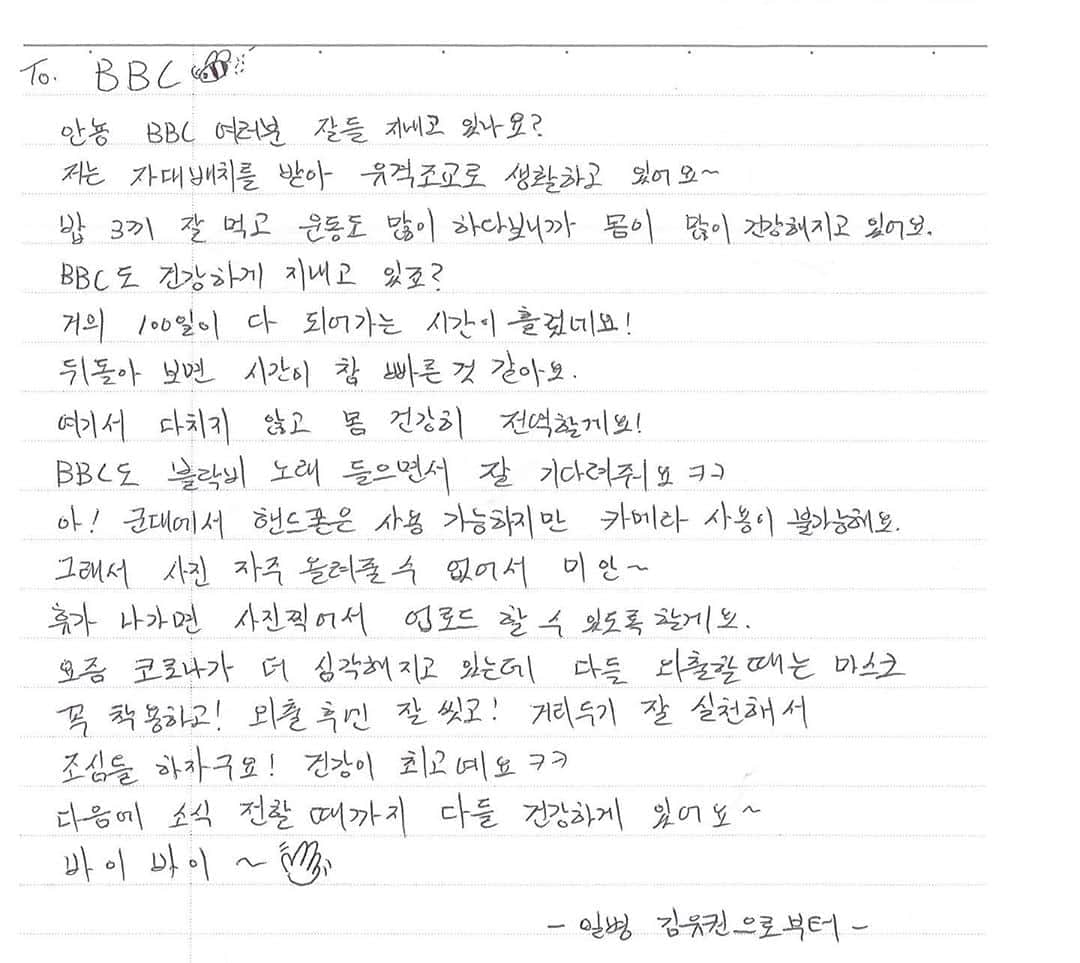 To. BBC
안뇽 BBC 여러분 잘들 지내고 있나요?
저는 자대배치를 받아 유격조교로 생활하고 있어요~
밥 3끼 잘 먹고 운동도 많이 하다보니까 몸이 많이 건강해지고 있어요.
BBC도 건강하게 지내고 있죠?
거의 100일이 다 되어가는 시간이 흘렀네요!
뒤돌아 보면 시간이 참 빠른 것 같아요.
여기서 다치지 않고 몸 건강히 전역할게요!
BBC도 블락비 노래 들으면서 잘 기다려줘요 ㅋㅋ
아! 군대에서 핸드폰은 사용 가능하지만 카메라 사용이 불가능해요.
그래서 사진 자주 올려줄 수 없어서 미안~
휴가 나가면 사진찍어서 업로드 할 수 있도록 할게요.
요즘 코로나가 더 심각해지고 있는데 다들 외출할 때는 마스크
꼭 착용하고! 외출 후엔 잘 씻고! 거리두기 잘 실천해서
조심들 하자구요! 건강이 최고예요 ㅋㅋ
다음에 소식 전할 때까지 다들 건강하게 있어요~
바이 바이 ~
- 일병 김유권으로부터 -